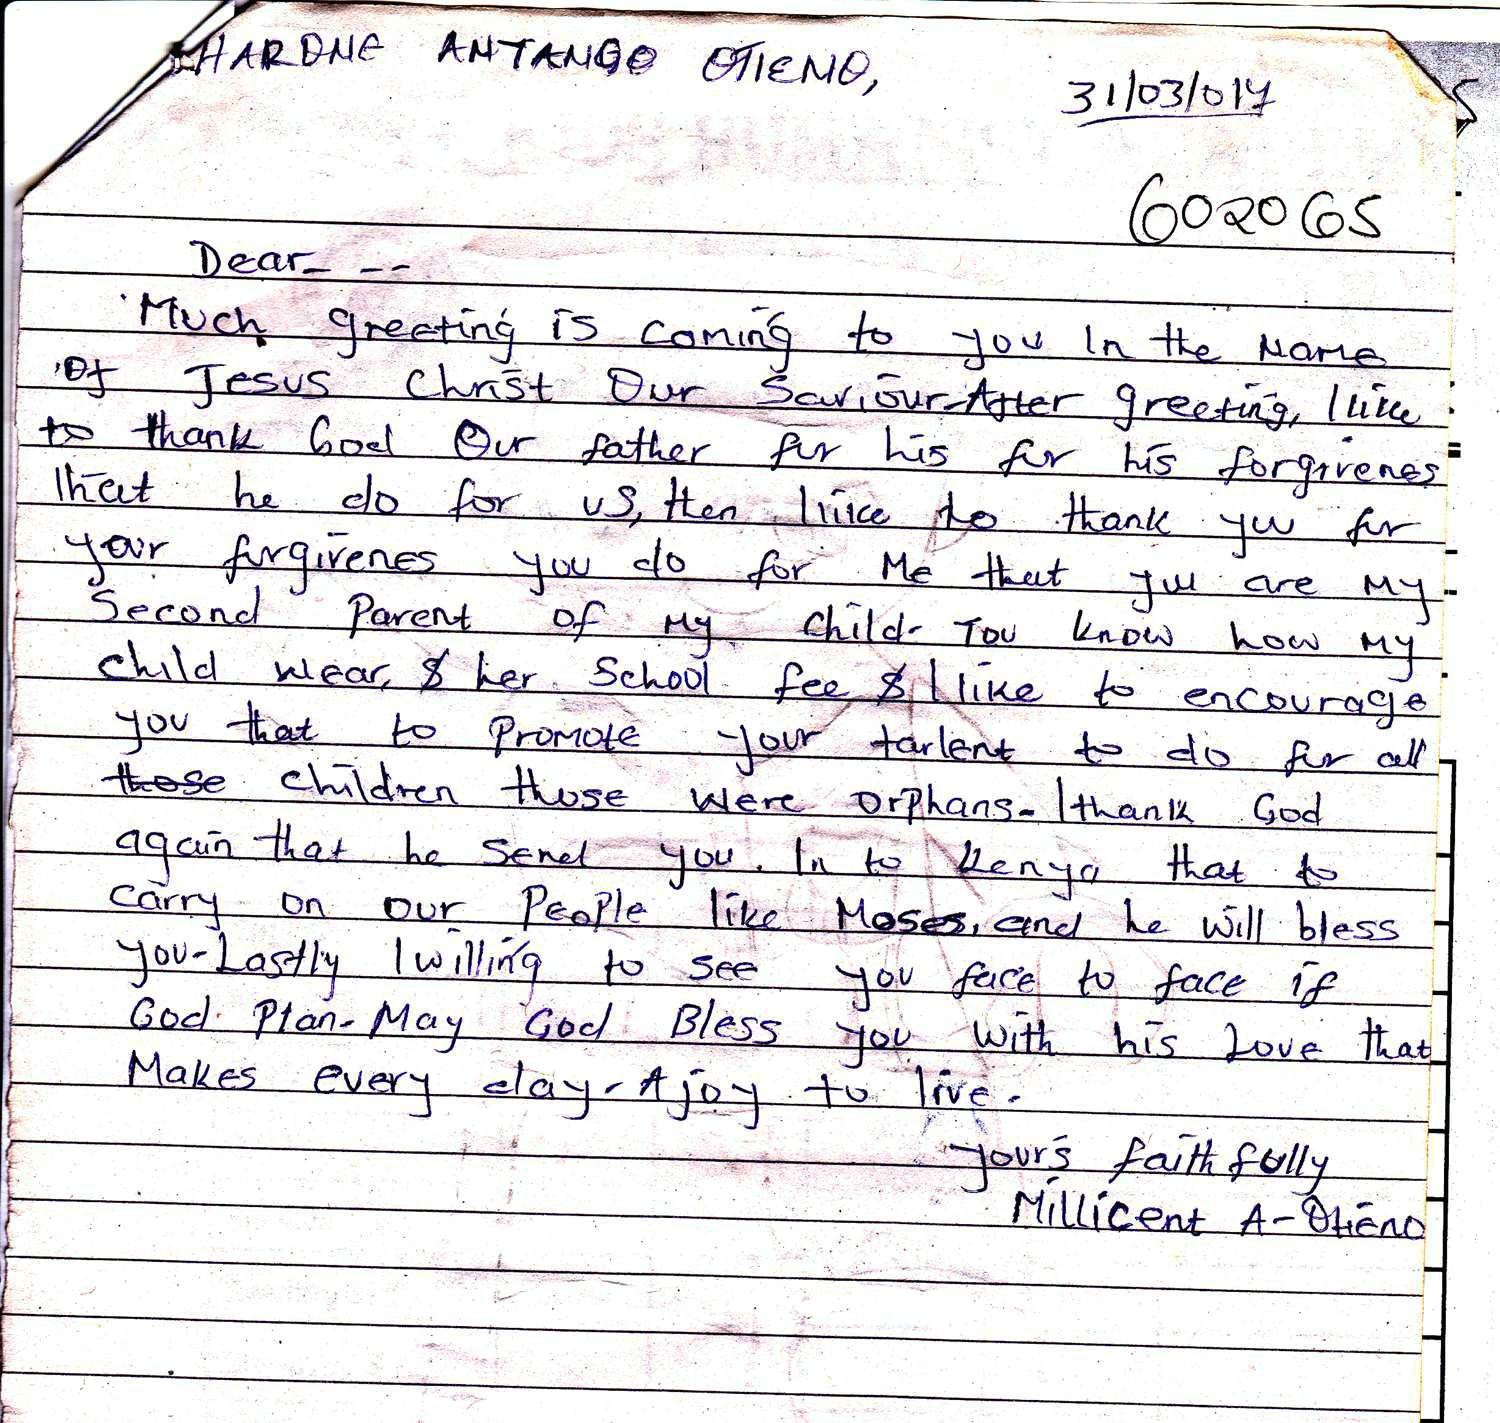 HARONE ANTANGO OTIENO,
31/03/017
602065
Dear_ _ _
Much greeting is coming to you In the Name
Of Jesus Christ Our Saviour-After greeting, I like
to thank God Our father for his for his forgivenes
that he do for us, then I like to thank you for
your forgivenes you do for Me that you are My
Second Parent of My child- You know how My
child wear, & her School fee & I like to encourage
you that to Promote your tarlent to do for all
those children those were orphans- I thank God
again that he send you. In to Kenya that to
carry on our People like Moses, and he will bless
you-Lastly I willing to see you face to face if
God Plan- May God Bless you with his Love that
Makes every day- A joy to live.
yours faithfully
Millicent A- Otieno